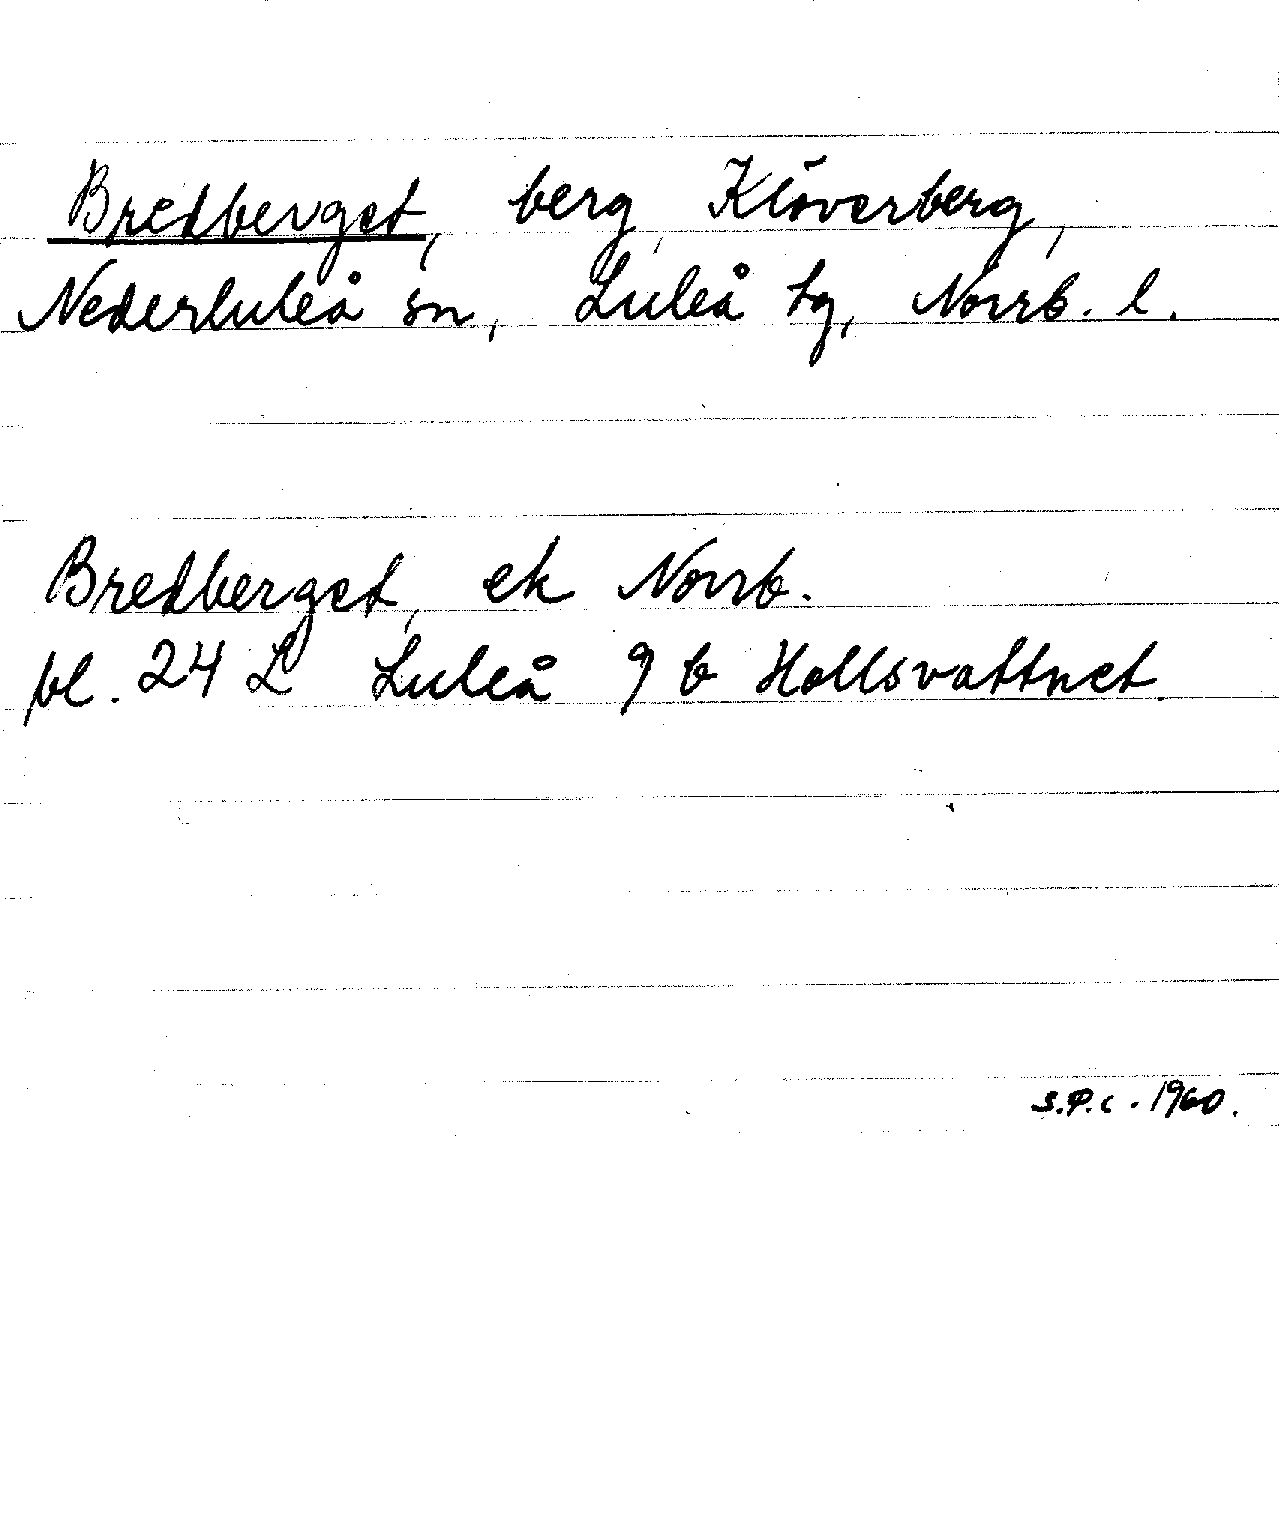 Bredberget, berg, Klöverberg,
Nederluleå sn, Luleå tg, Norrb. l.
Bredberget, ek Norrb.
bl. 24 L Luleå 9 b Hollsvattnet.
S.P.C. 1960.